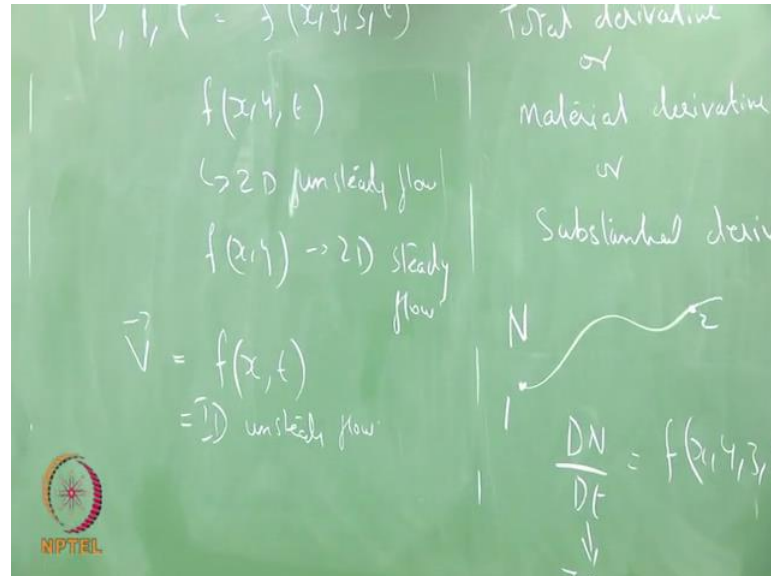 P, T, ρ = f(x,y,z,t)
f(x,y,t)
↳ 2D unsteady flow
f(x,y) → 2D steady
flow
V⃗ = f(x,t)
= 1D unsteady flow
Total derivative
or
Material derivative
or
Substantial deriv
N
1
2
DN/Dt = f(x,y,z,
↓
NPTEL